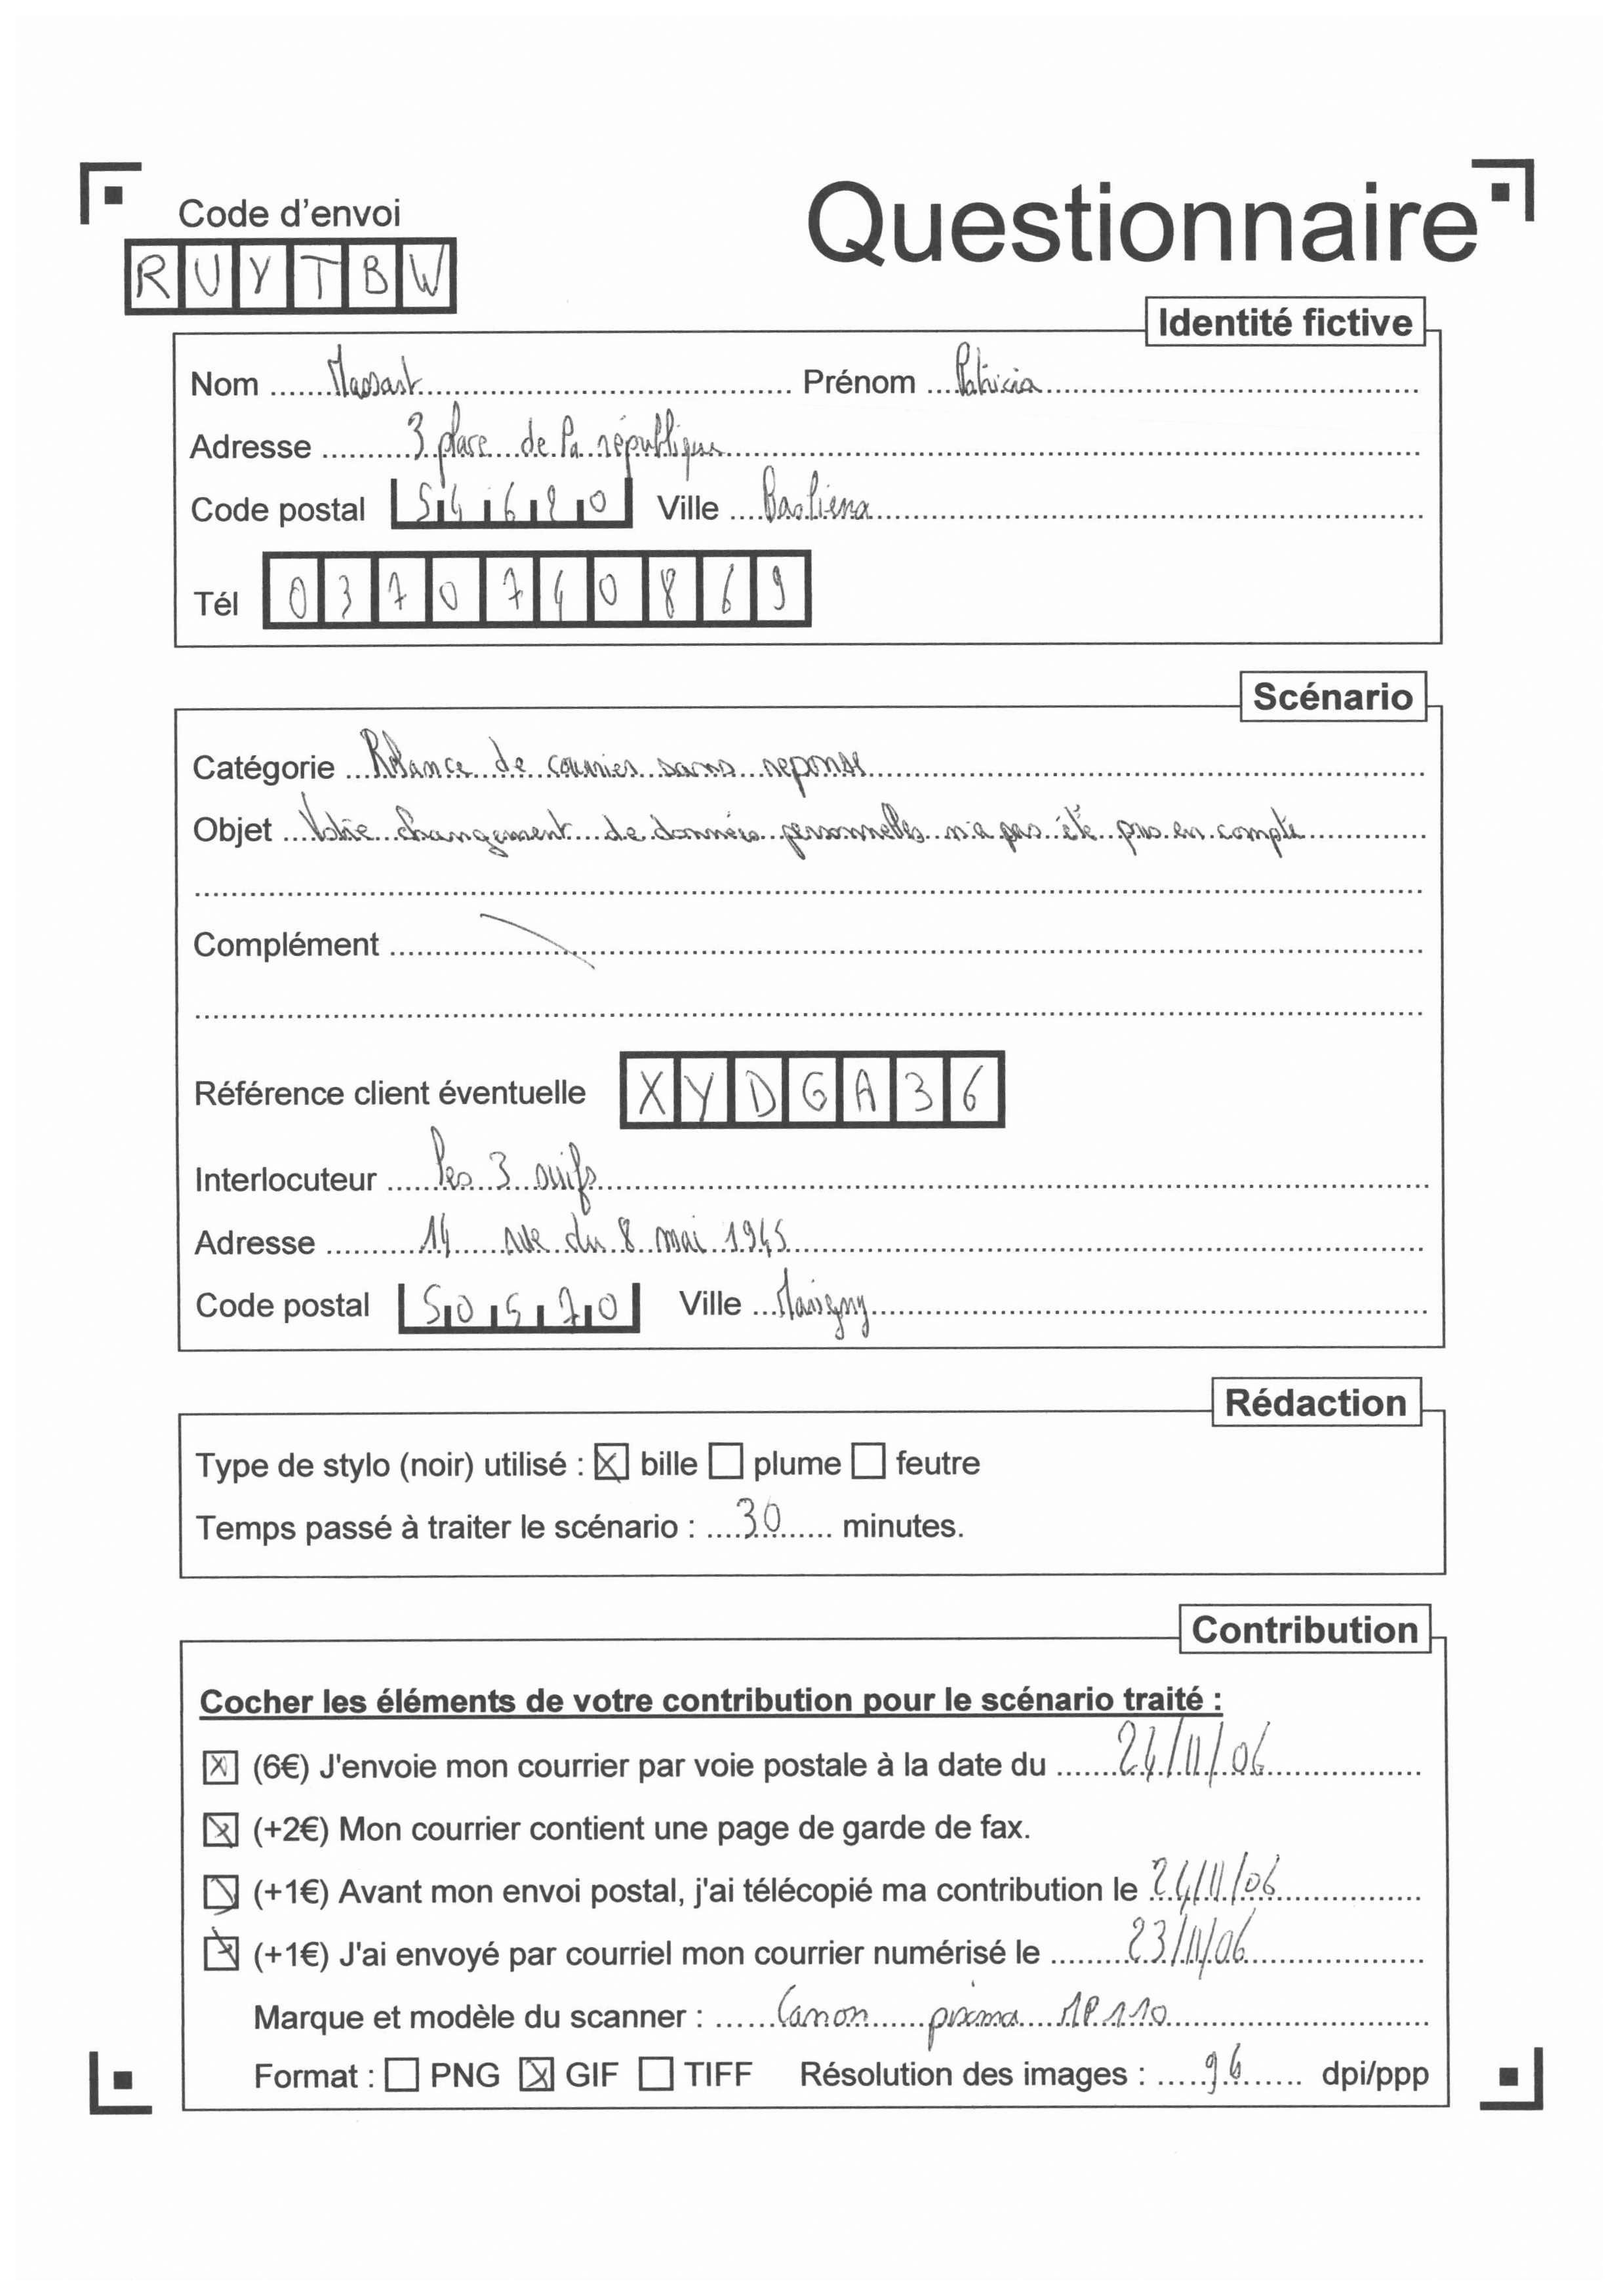 Code d'envoi
Questionnaire
RUYTBW
Identité fictive
Nom Massart Prénom Patricia
Adresse 3 place de la république
Code postal 54620 Ville Baslieux
Tél 0370740869
Scénario
Catégorie Relance de courrier sans reponse
Objet Votre changement de données personnelles n'a pas été pris en compte
Complément
Référence client éventuelle XYDGA36
Interlocuteur les 3 suifs
Adresse 14 rue du 8 mai 1945
Code postal 50570 Ville Marigny
Rédaction
Type de stylo (noir) utilisé : bille plume feutre
Temps passé à traiter le scénario : 30 minutes.
Contribution
Cocher les éléments de votre contribution pour le scénario traité :
(6€) J'envoie mon courrier par voie postale à la date du 24/11/06
(+2€) Mon courrier contient une page de garde de fax.
(+1€) Avant mon envoi postal, j'ai télécopié ma contribution le 24/11/06
(+1€) J'ai envoyé par courriel mon courrier numérisé le 23/11/06
Marque et modèle du scanner : Canon pixma MP110
Format : PNG GIF TIFF Résolution des images : 96 dpi/ppp